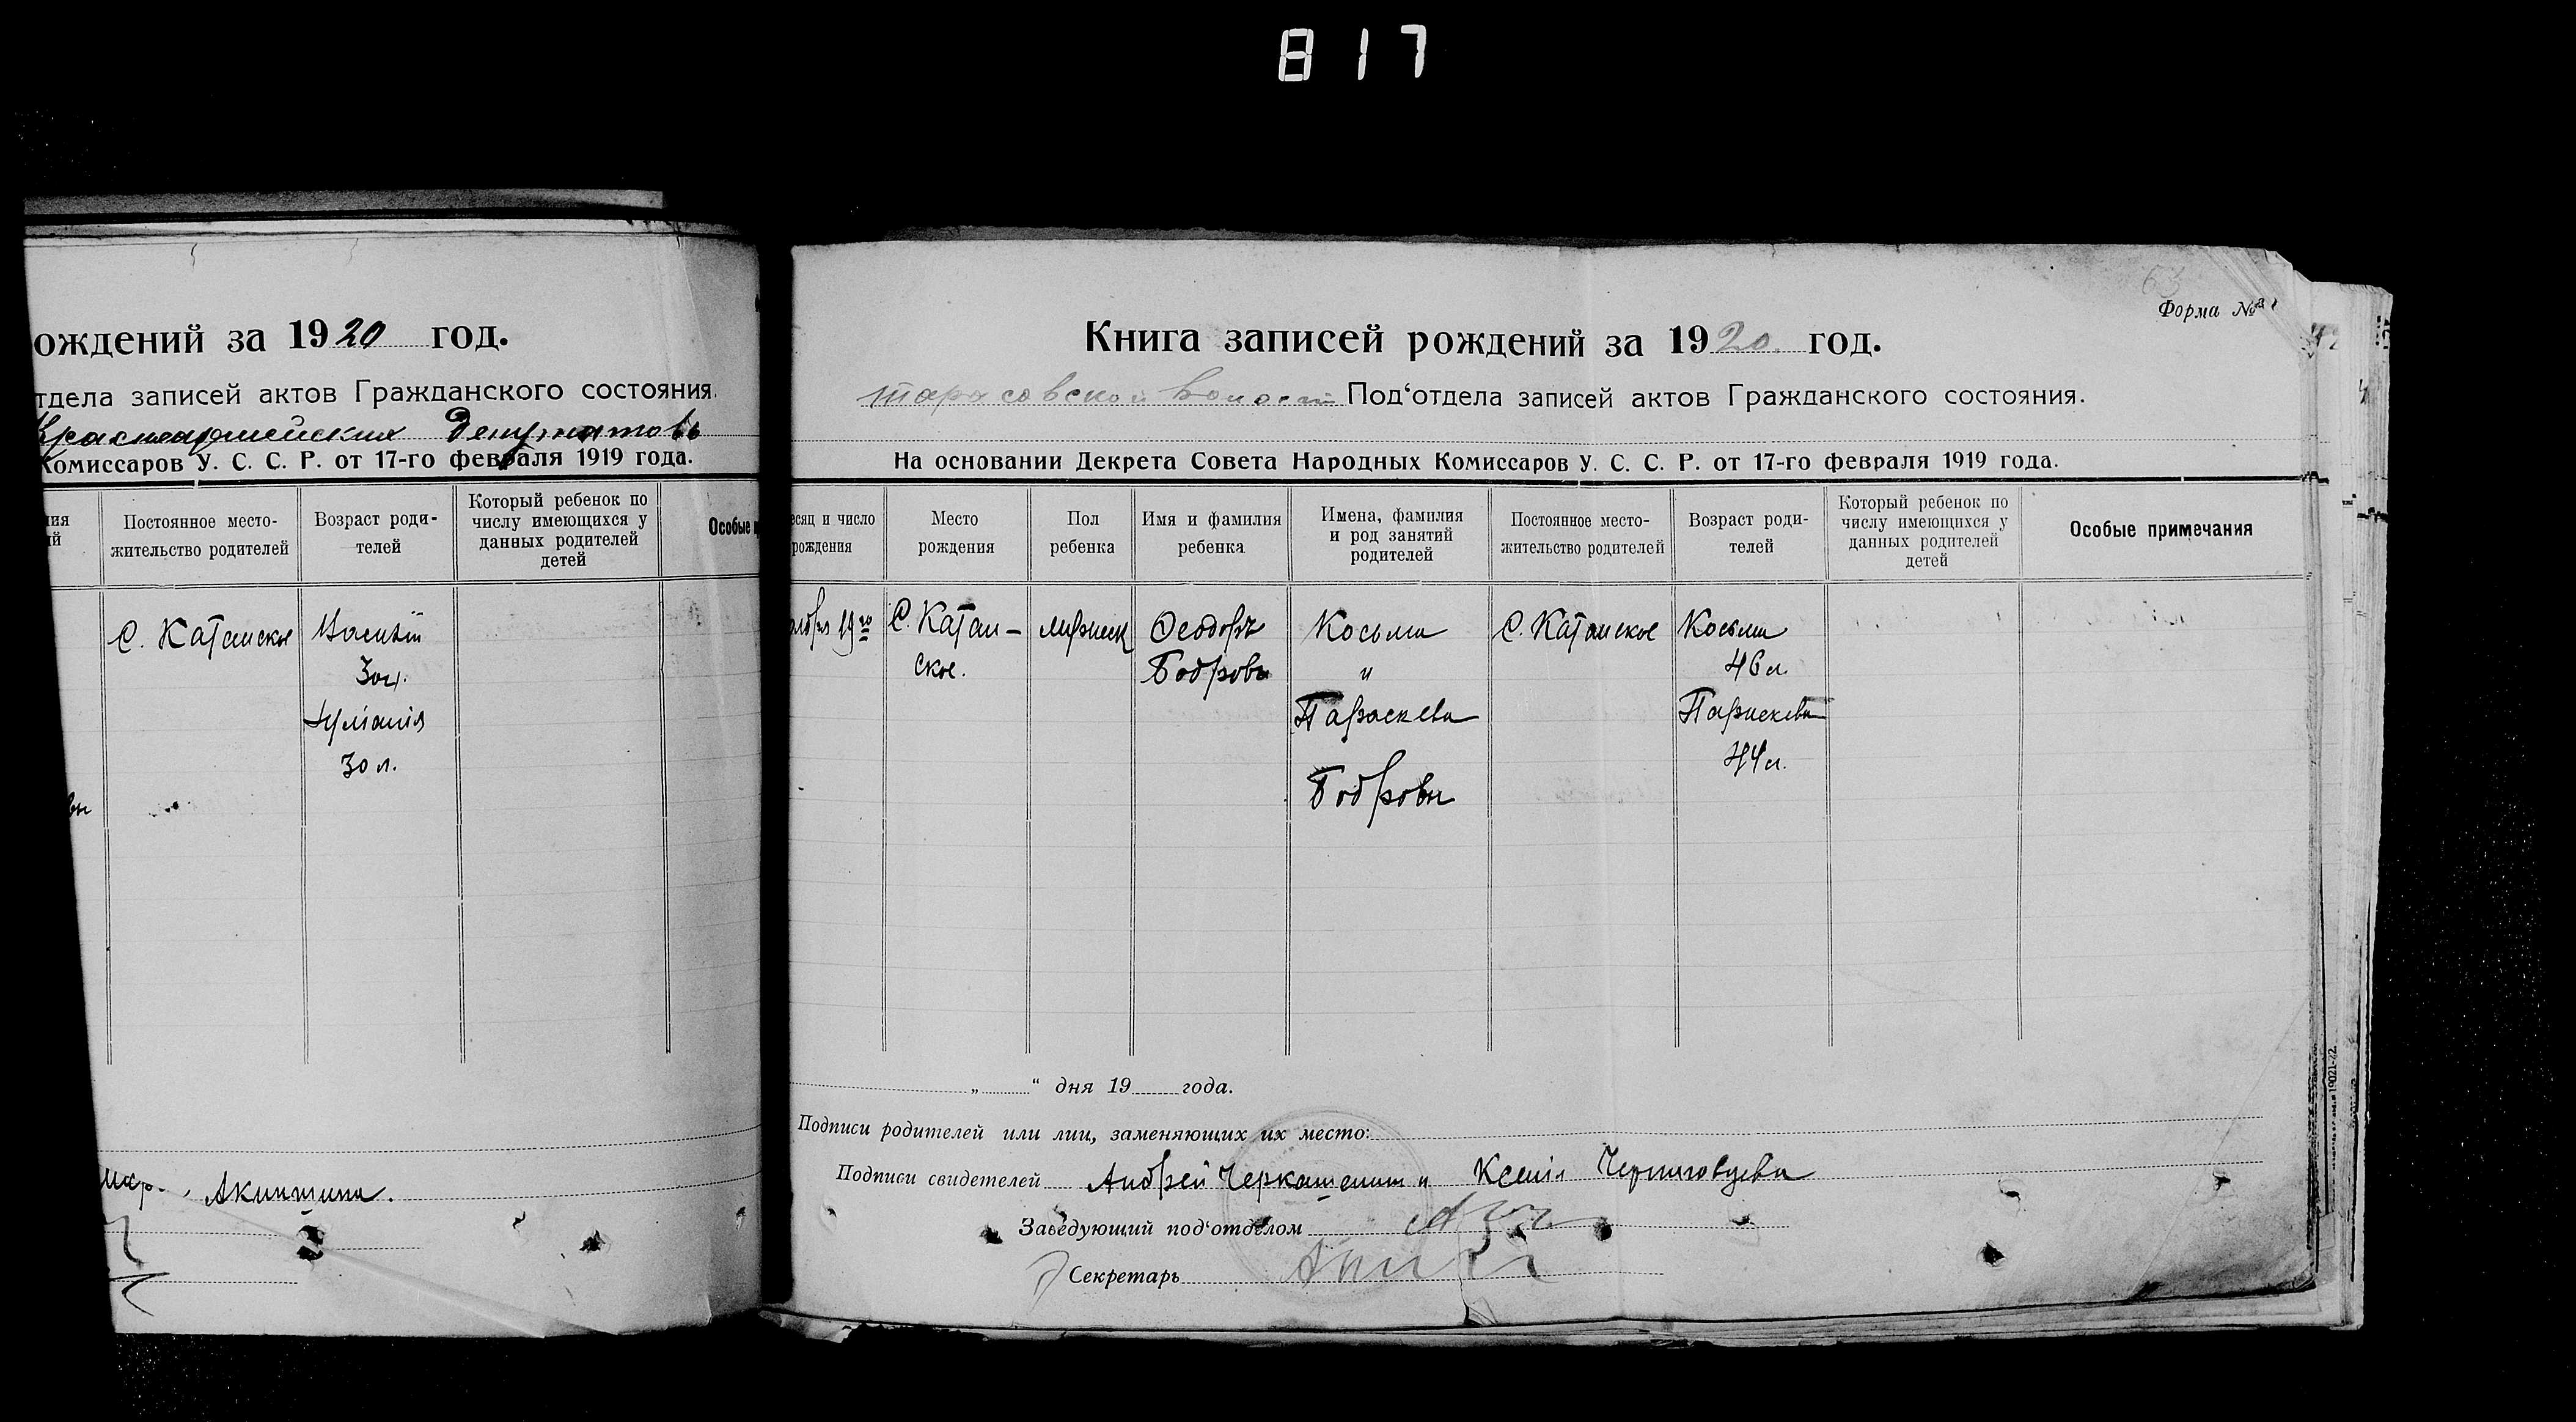 817
ождений за 1920 год.
тдела записей актов Гражданского состояния.
Красноармейских Депутатовъ
Комиссаров У. С. С. Р. от 17-го февраля 1919 года.
Постоянное место-
жительство родителей
Возраст роди-
телей
Который ребенок по
числу имеющихся у
данных родителей
детей
Особые
С. Катанское
30 л.
30 л.
Акиншина.
63
Форма №
Книга записей рождений за 1920 год.
Тарасовской Волости Под‘отдела записей актов Гражданского состояния.
На основании Декрета Совета Народных Комиссаров У. С. С. Р. от 17-го февраля 1919 года.
есяц и число
рождения
Место
рождения
Пол
ребенка
Имя и фамилия
ребенка
Имена, фамилия
и род занятий
родителей
Постоянное место-
жительство родителей
Возраст роди-
телей
Который ребенок по
числу имеющихся у
данных родителей
детей
Особые примечания
19го
С. Катан-
ское.
мужеск
Ѳеодоръ
Бобровъ
Косьма
и
Параскева
Бобровы
С. Катанское
Косьма
46 л.
Параскева
44 л.
„ “ дня 19 года.
Подписи родителей или лиц, заменяющих их место:
Подписи свидетелей Андрей Черкашенин и Ксенія Черниговцева
Заведующий под‘отделом
Секретарь